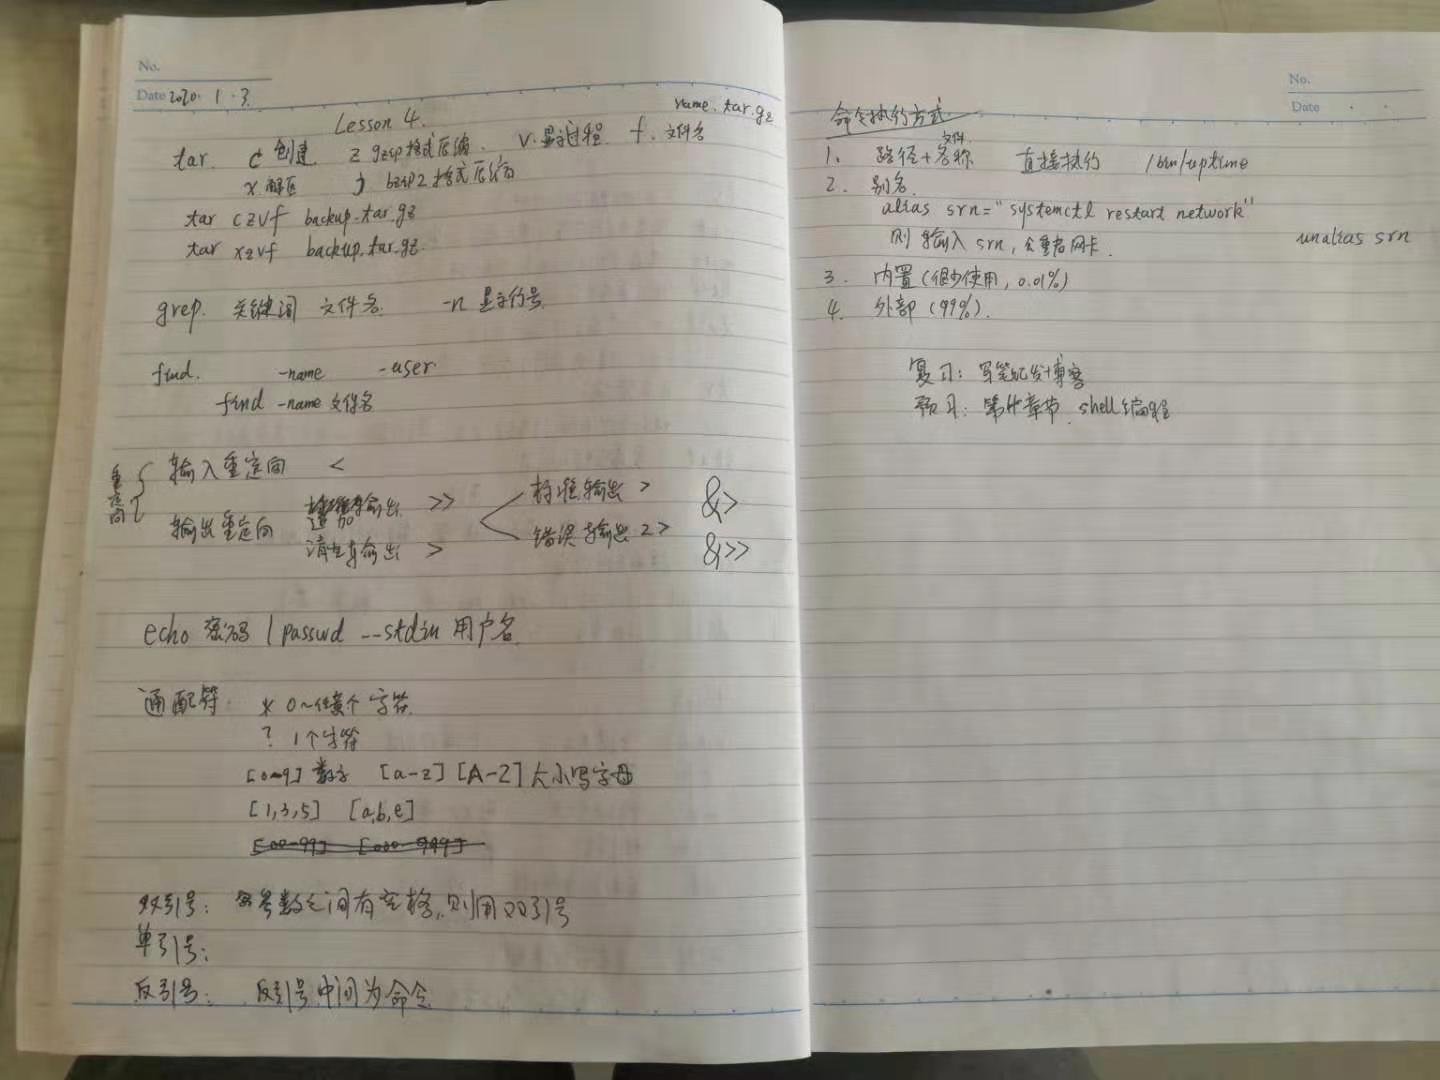 No.
Date 2020. 1. 3.
Lesson 4.
name.tar.gz
tar. c 创建 z gzip格式压缩. v. 显示过程 f. 文件名
x 解压 j bzip2格式压缩
tar czvf backup.tar.gz
tar xzvf backup.tar.gz.
grep. 关键词 文件名 -n 显示行号
find. -name -user
find -name 文件名
重定向
输入重定向 <
输出重定向
追加输出 >>
清空输出 >
标准输出 > &>
错误输出 2> &>>
echo 密码 | passwd --stdin 用户名
通配符. * 0~任意个字符
? 1个字符
[0~9] 数字 [a-z] [A-Z] 大小写字母
[1,3,5] [a,b,e]
[00-99] [000-999]
双引号: 参数之间有空格,则用双引号
单引号:
反引号: 反引号中间为命令
No.
Date
命令执行方式
文件
1. 路径+名称 直接执行 /bin/uptime
2. 别名.
alias srn="systemctl restart network"
则输入 srn, 会重启网卡. unalias srn
3. 内置(很少使用, 0.01%)
4. 外部(99%).
复习: 写笔记发博客
预习: 第4章节. shell编程